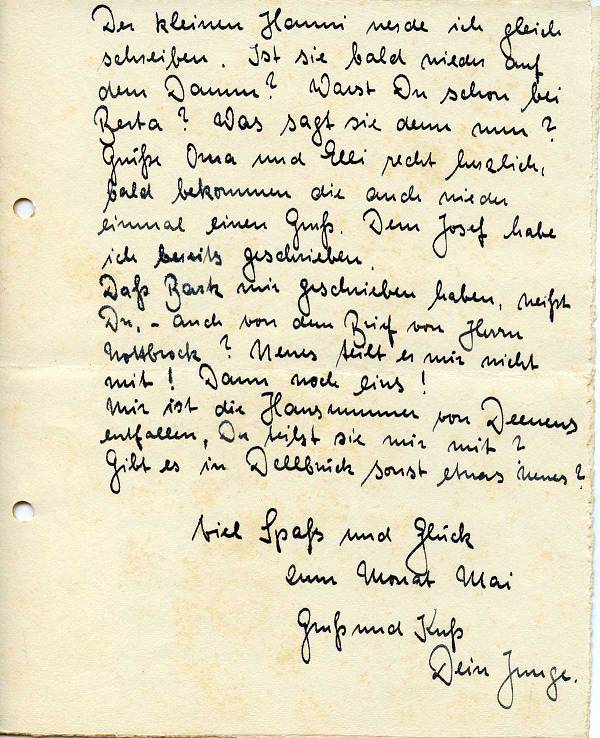 Der kleinen Hanni werde ich gleich
schreiben. Ist sie bald wieder auf
dem Damm? Warst Du schon bei
Berta? Was sagt sie denn nun?
Grüße Oma und Elli recht herzlich,
bald bekommen die auch wieder
einmal einen Gruß. Dem Josef habe
ich bereits geschrieben.
Daß Bark mir geschrieben haben, weißt
Du, - auch von dem Brief von Herrn
Nottbrock? Neues teilt er mir nicht
mit! Dann noch eins!
Mir ist die Hausnummer von Deenens
entfallen, Du teilst sie mir mit?
Gibt es in Dellbrück sonst etwas neues?
Viel Spaß und Glück
zum Monat Mai
Gruß und Kuß
Dein Junge.